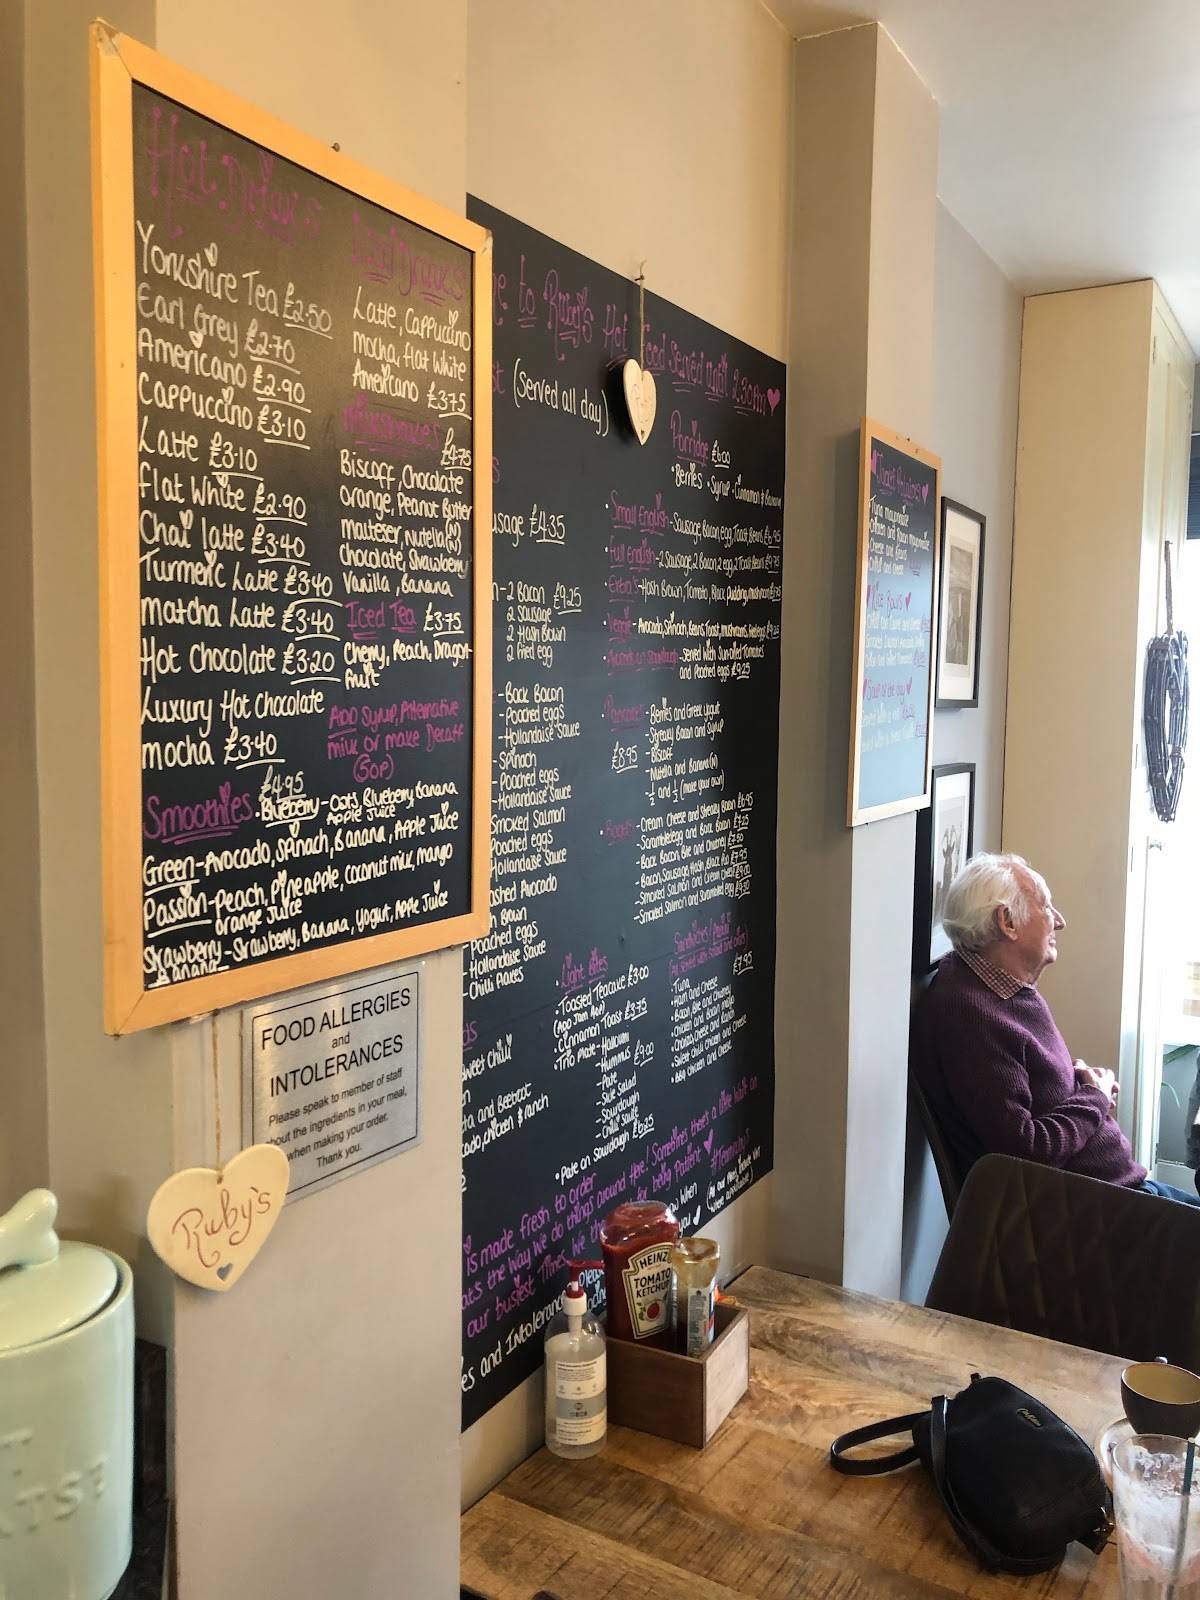 Hot Drinks
Yorkshire Tea £2.50
Earl Grey £2.70
Americano £2.90
Cappuccino £3.10
Latte £3.10
Flat White £2.90
Chai latte £3.40
Turmeric Latte £3.40
Matcha Latte £3.40
Hot Chocolate £3.20
Luxury Hot Chocolate
mocha £3.40
Iced Drinks
Latte, Cappuccino
mocha, flat White
Americano £3.75
Milkshakes £4.75
Biscoff, Chocolate
orange, Peanut Butter
malteser, Nutella (N)
chocolate, Strawberry
Vanilla, Banana
Iced Tea £3.75
Cherry, Peach, Dragon-
fruit
Add Syrup, Alternative
milk or make Decaff
(50p)
Smoothies £4.95
Blueberry - Oats, Blueberry, Banana
Apple Juice
Green - Avocado, Spinach, Banana, Apple Juice
Passion - Peach, Pineapple, coconut milk, mango
orange Juice
Strawberry - Strawberry, Banana, Yogurt, Apple Juice
Banana
FOOD ALLERGIES
and
INTOLERANCES
Please speak to member of staff
about the ingredients in your meal,
when making your order.
Thank you.
Ruby's
to Ruby's Hot Food Served until 2.30pm
(Served all day)
usage £4.35
- 2 Bacon £9.25
2 Sausage
2 Hash Brown
2 fried egg
- Back Bacon
- Poached eggs
- Hollandaise Sauce
- Spinach
- Poached eggs
- Hollandaise Sauce
Smoked Salmon
Poached eggs
Hollandaise Sauce
ashed Avocado
Brown
- Poached eggs
- Hollandaise Sauce
- Chilli flakes
weet Chilli
ta and Beetroot
cado, chicken & ranch
Porridge £6.00
• Berries • Syrup • Cinnamon & Banana
• Small English - Sausage, Bacon, egg, Toast, Beans £6.95
• Full English - 2 Sausage, 2 Bacon, 2 egg, 2 Toast, Beans £9.75
• Extra's - Hash Brown, Tomato, Black Pudding, mushroom
• Veggie - Avocado, Spinach, Beans, Toast, mushrooms, fried egg £9.25
• Avocado on Sourdough - Served with Sun-dried Tomatoes
and Poached eggs £9.25
• Pancakes - Berries and Greek Yogurt
£8.95 - Streaky Bacon and Syrup
- Biscoff
- Nutella and Banana (N)
- ½ and ½ (make your own)
• Bagels - Cream Cheese and Streaky Bacon £6.95
- Scrambled egg and Back Bacon £7.25
- Back Bacon, Brie and Chutney £7.50
- Bacon, Sausage, Hash Brown £7.95
- Smoked Salmon and Cream Cheese £9.00
- Smoked Salmon and Scrambled egg £9.30
• Light Bites
• Toasted Teacake £3.00
(Add Jam 40p)
• Cinnamon Toast £3.75
• Trio Plate - Halloumi
- Hummus £9.00
- Pate
- Side Salad
- Sourdough
- Chilli Sauce
• Pate on Sourdough £6.25
Sandwiches/
(All served with Salad and crisps)
£7.95
• Tuna
• Ham and Cheese
• Bacon, Brie and Chutney
• Chicken and Bacon mayo
• Chorizo, Cheese and Ranch
• Sweet Chilli Chicken and Cheese
• BBQ Chicken and Cheese
is made fresh to order
at's the way we do things around Here! Sometimes there's a little wait on
our busiest Times, We
for being Patient
es and Intoleranc
Jacket Potatoes
Tuna mayonnaise
Chicken and Bacon mayonnaise
Cheese and Beans
Rice Bowls
Soup of the day
HEINZ
TOMATO
KETCHUP